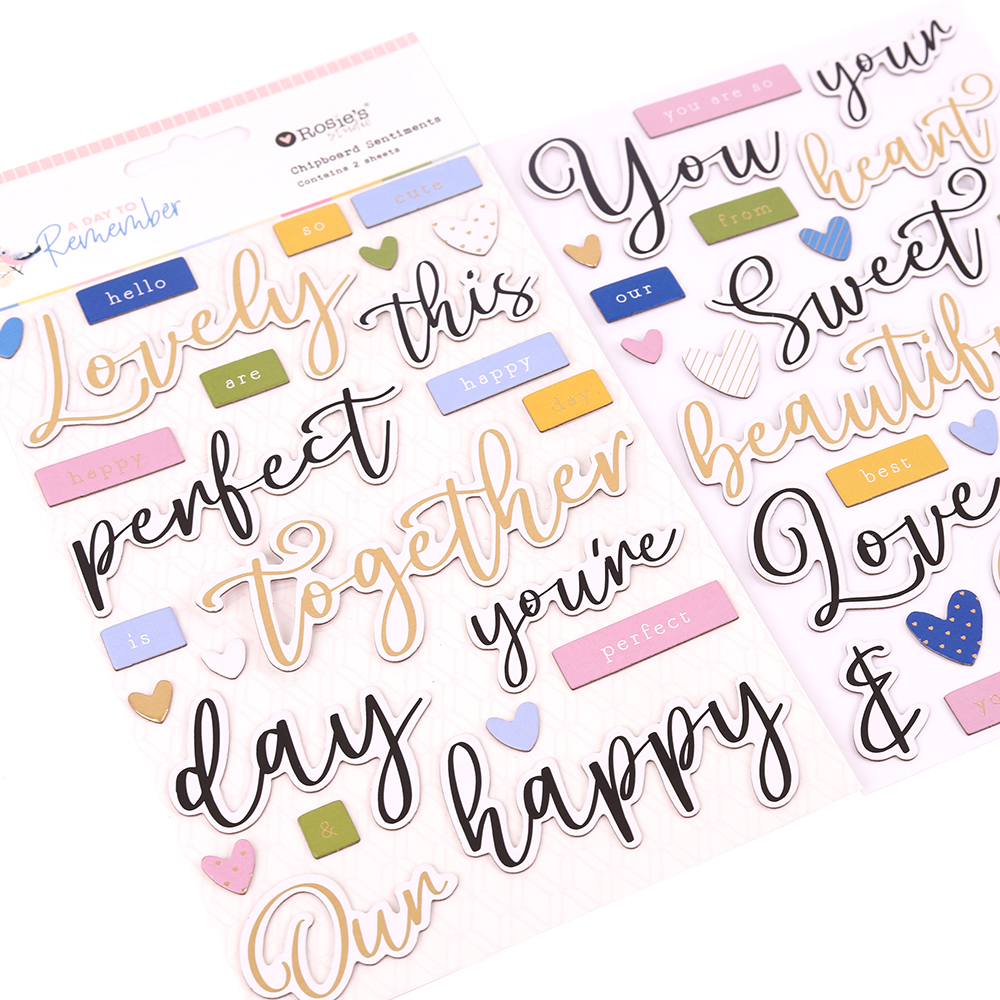 Rosie's
studio
Chipboard Sentiments
Contains 2 sheets
A DAY TO
Remember
cute
so
hello
Lovely
this
are
happy
day
happy
perfect
together
is
you're
perfect
day
happy
&
Our
your
you are so
You
heart
from
our
Sweet
beautif
best
Love
&
yo